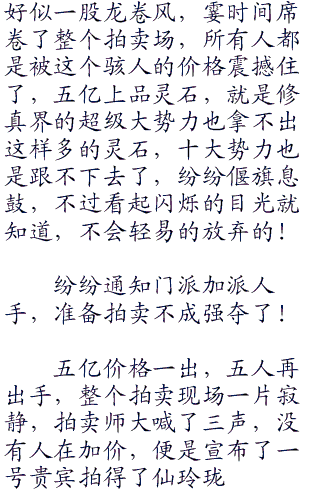 好似一股龙卷风，霎时间席
卷了整个拍卖场，所有人都
是被这个骇人的价格震撼住
了，五亿上品灵石，就是修
真界的超级大势力也拿不出
这样多的灵石，十大势力也
是跟不下去了，纷纷偃旗息
鼓，不过看起闪烁的目光就
知道，不会轻易的放弃的！
纷纷通知门派加派人
手，准备拍卖不成强夺了！
五亿价格一出，五人再
出手，整个拍卖现场一片寂
静，拍卖师大喊了三声，没
有人在加价，便是宣布了一
号贵宾拍得了仙玲珑